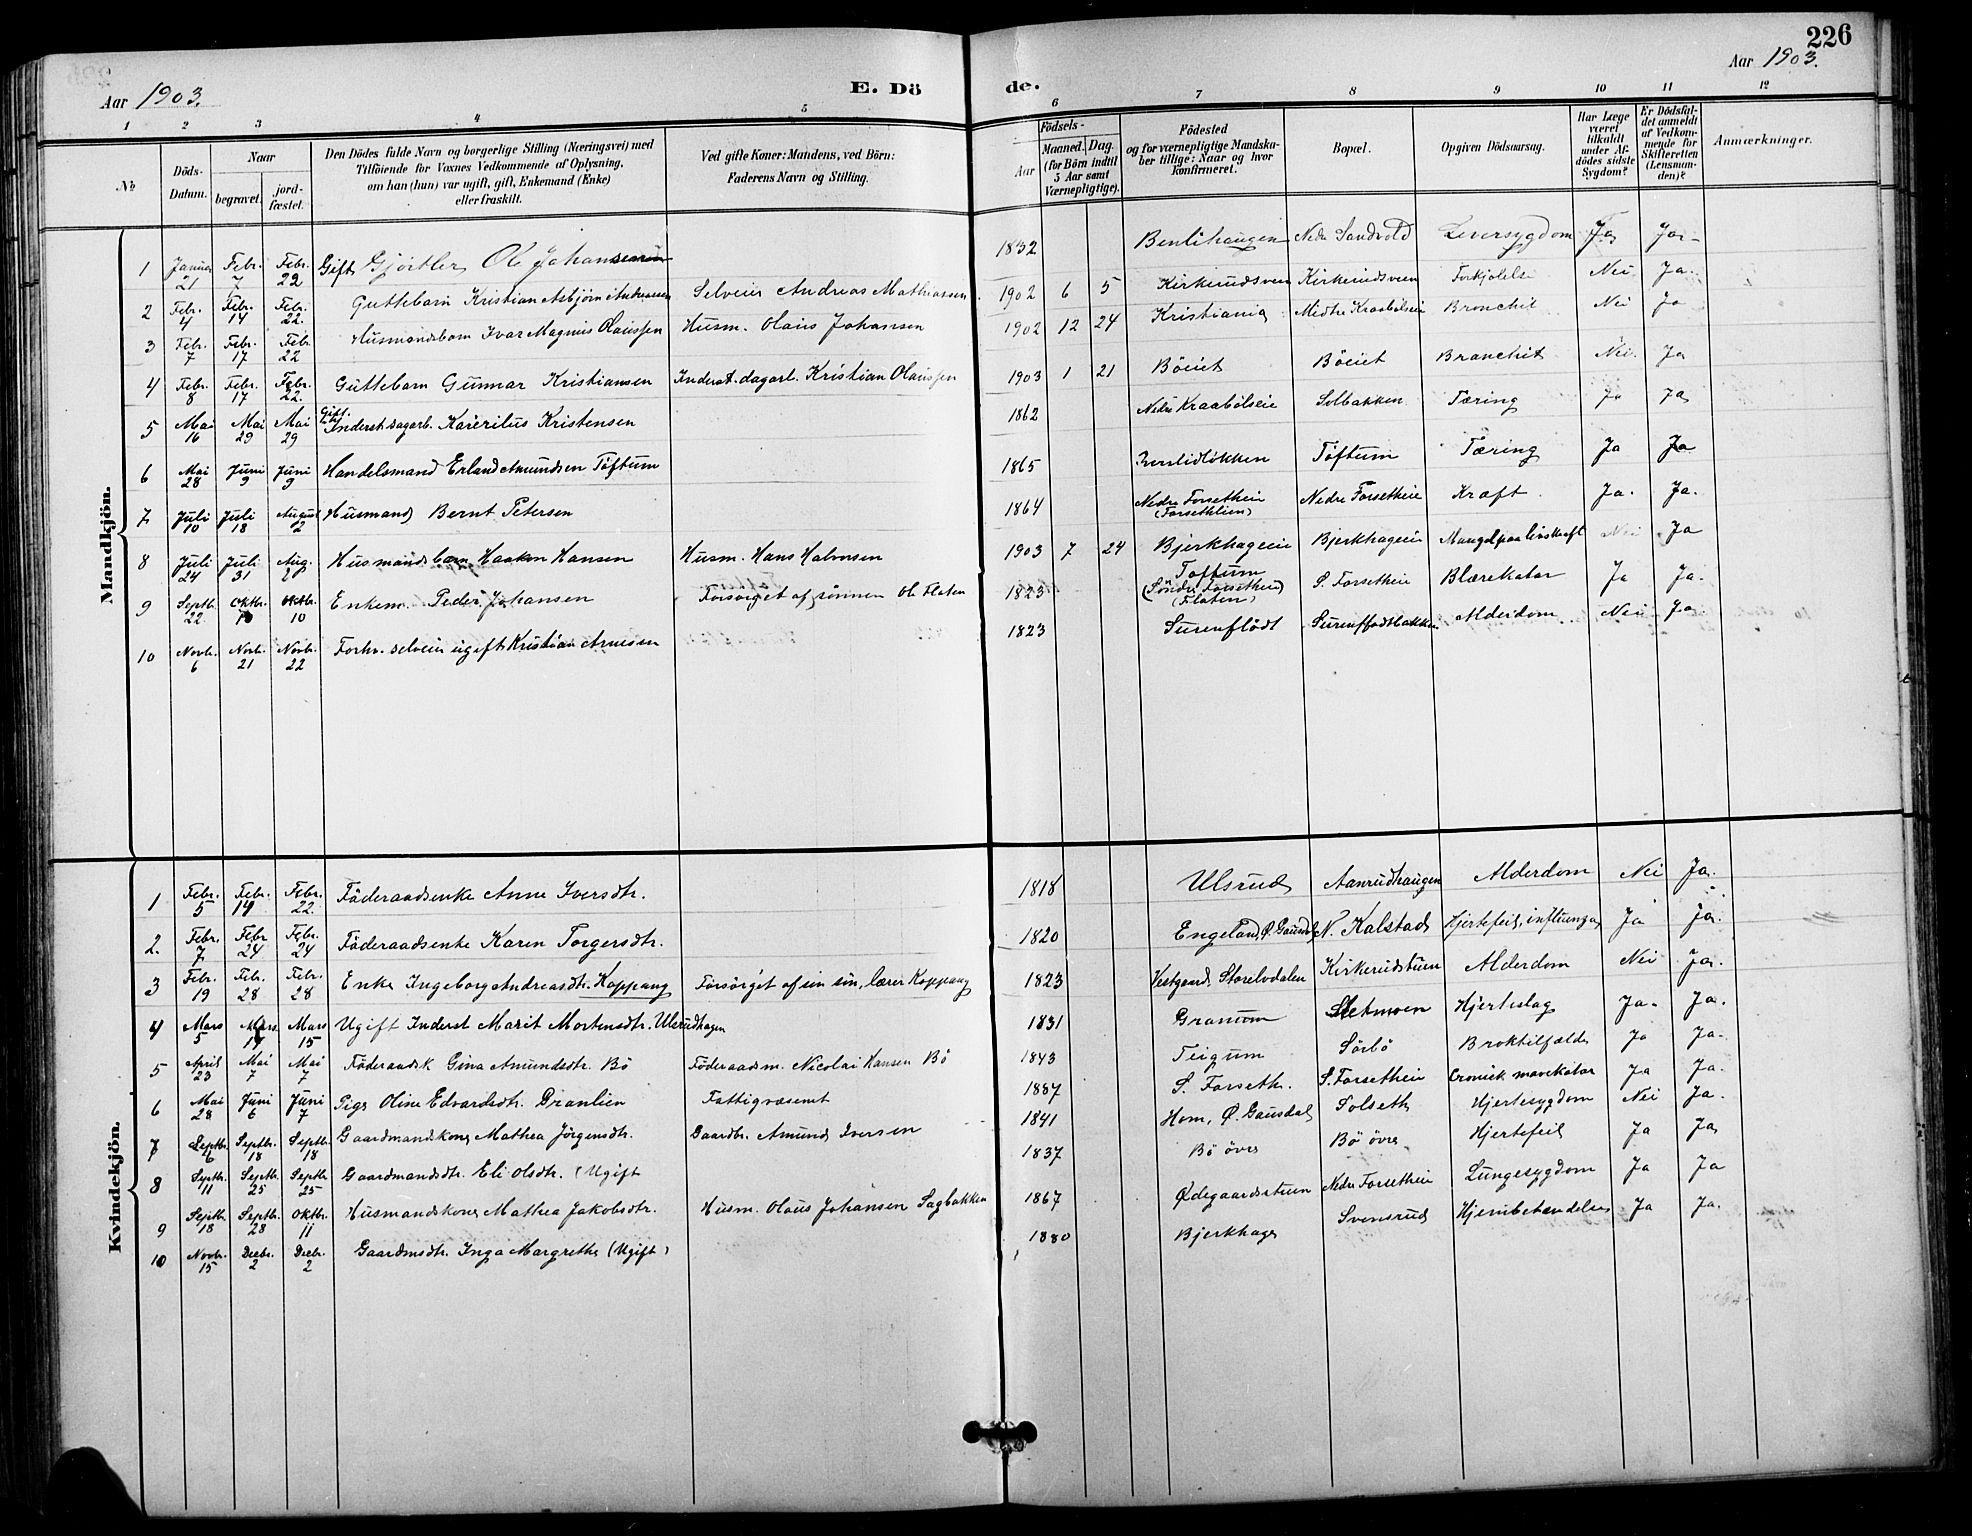 226
Aar 1903.
E. Dö de.
Aar 1903.
1 2 3 4 5 6 7 8 9 10 11 12
No
Döds-Datum.
Naar
begravet.
jord-fæstet.
Den Dödes fulde Navn og borgerlige Stilling (Næringsvei) med
Tilföiende for Voxnes Vedkommende af Oplysning,
om han (hun) var ugift, gift, Enkemand (Enke)
eller fraskilt.
Ved gifte Koner: Mandens, ved Börn:
Faderens Navn og Stilling.
Födsels-
Aar
Maaned. Dag.
(for Börn indtil
5 Aar samt
Værnepligtige).
Födested
og for værnepligtige Mandska-
ber tillige: Naar og hvor
konfirmeret.
Bopæl.
Opgiven Dödsaarsag.
Har Læge
været
tilkaldt
under Af-
dödes sidste
Sygdom?
Er Dödsfal-
det anmeldt
af Vedkom-
mende for
Skifteretten
(Lensman-
den)?
Anmærkninger.
Mandkjön.
1 Januar 21 Febr. 7 Febr. 22 Gift Gjörtler Ole Johansen 1832 Benlihaugen Nedre Sandvold Leversygdom Ja Ja
2 Febr. 4 Febr. 14 Febr. 22. Guttebarn Kristian Asbjørn Andreassen Selveier Andreas Mathiassen 1902 6 5 Kirkerudsveen Kirkerudsveen Forkjölelse Nei Ja.
3 Febr. 7 Febr. 17 Febr. 22 Husmandsbarn Ivar Magnus Olaussen Husm. Olaus Johansen 1902 12 24 Kristiania Midtre Kraabölseie Bronchit Nei Ja
4 Febr. 8 Febr. 17 Febr. 22. Guttebarn Gunnar Kristiansen Inderst. dagarb. Kristian Olaussen 1903 1 21 Böeiet Böeiet Bronchit Nei. Ja
5 Mai 16 Mai 29 Mai 29 Gift. Inderst. dagarb. Karerilus Kristensen 1862 Nedre Kraabölseie Solbakken Tæring Ja Ja
6 Mai 28 Juni 9 Juni 9 Handelsmand Erland Amundsen Töftum 1865 Töftum Tæring Ja Ja
7 Juli 10 Juli 18 August 2 Husmand Bernt Petersen 1864 Nedre Forsetheie (Forsethlien) Nedre Forsetheie Kræft. Ja. Ja.
8 Juli 24 Juli 31 Aug. 2 Husmandsbarn Haakon Hansen Husm. Hans Halvorsen 1903 7 24 Bjerkhageeie Bjerkhageeie Mangel paa livskraft Nei Ja
9 Septbr. 22 Oktbr. 10 Oktbr. 10 Enkem. Peder Johansen Forsørget af sønnen Ole Flaten 1823 Toftum (Söndre Forsetheie) (Flaten) S. Forsetheie Blærekatar Ja Ja.
10 Novbr. 6 Novbr. 21 Novbr. 22 Forhv. selveier ugift Kristian Arnesen 1823 Surenflödt Alderdom Nei Ja.
Kvindekjön.
1 Febr. 5 Febr. 14 Febr. 22. Föderaadsenke Anne Iversdtr. 1818 Ulsrud Aanrudhaugen Alderdom Nei Ja.
2. Febr. 7. Febr 24 Febr. 24 Föderaadsenke Karen Torgersdtr. 1820 Engeland, Ø. Gausdal N. Kalstad Hjertefeil, influenza Ja Ja.
3 Febr. 19 Febr. 28 Febr. 28 Enke Ingeborg Andreasdtr. Koppang Forsörget af sin sön, lærer Koppang 1823 Vestgaard, Storelvdalen Kirkerudstuen Alderdom Nei Ja.
4 Mars 5 Mars 14 Mars 15 Ugift Inderst Marit Mortensdtr. Ulsrudhagen 1831 Granum Sletmoen Hjerteslag Ja. Ja.
5 April 23 Mai 7 Mai 7 Föderaadsk Gina Amundsdtr. Bö Föderaadsm. Nicolai Hansen Bö 1843 Teigum Sörbö Broktilfælde Ja Ja.
6 Mai 28 Juni 6 Juni 7 Pige Oline Edvardsdtr. Dranlien Fattigvæsenet 1887 S. Forseth. S. Forsetheie Cronisk mavekatar Ja Ja.
7 Septbr. 6 Septbr. 18 Septbr. 18 Gaardmandskone Mathea Jörgensdtr. Gaardbr. Amund Iversen 1841 Hom, Ø. Gausdal Solseth Hjertesygdom Nei Ja.
8 Septbr. 11 Septbr. 25 Septbr. 25 Gaardmandsdtr. Eli Olsdtr. (Ugift 1837 Bö övre Bö övre Hjertefeil Ja Ja
9 Septbr. 18 Septbr. 28 Oktbr. 11 Husmandskone Mathea Jakobsdtr. Husm. Olaus Johansen Sagbakken 1867 Ødegaardsstuen Nedre Forsetheie Lungesygdom Ja Ja
10 Novbr. 15 Decbr. 2 Decbr. 2 Gaardmsdtr. Inga Margrethe (Ugift) 1880 Bjerkhage Svensrud Ja Ja.